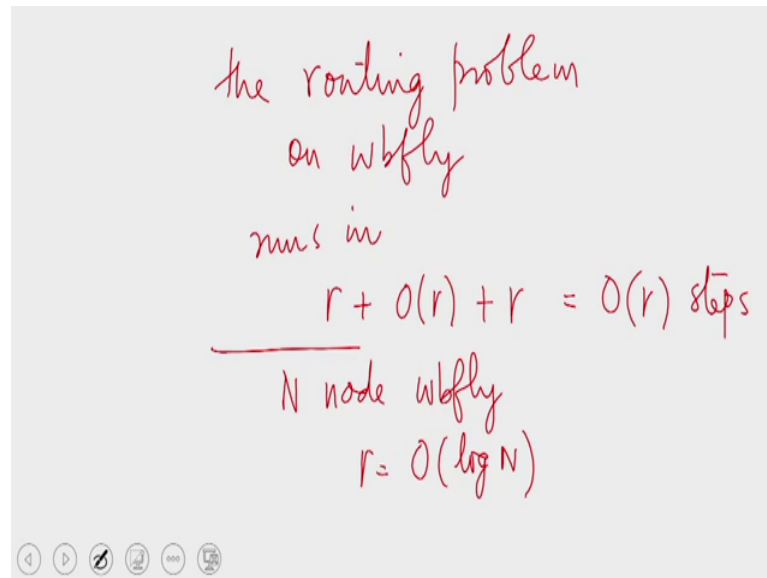 the routing problem
on wbfly
runs in
r + O(r) + r = O(r) steps
N node wbfly
r = O(log N)